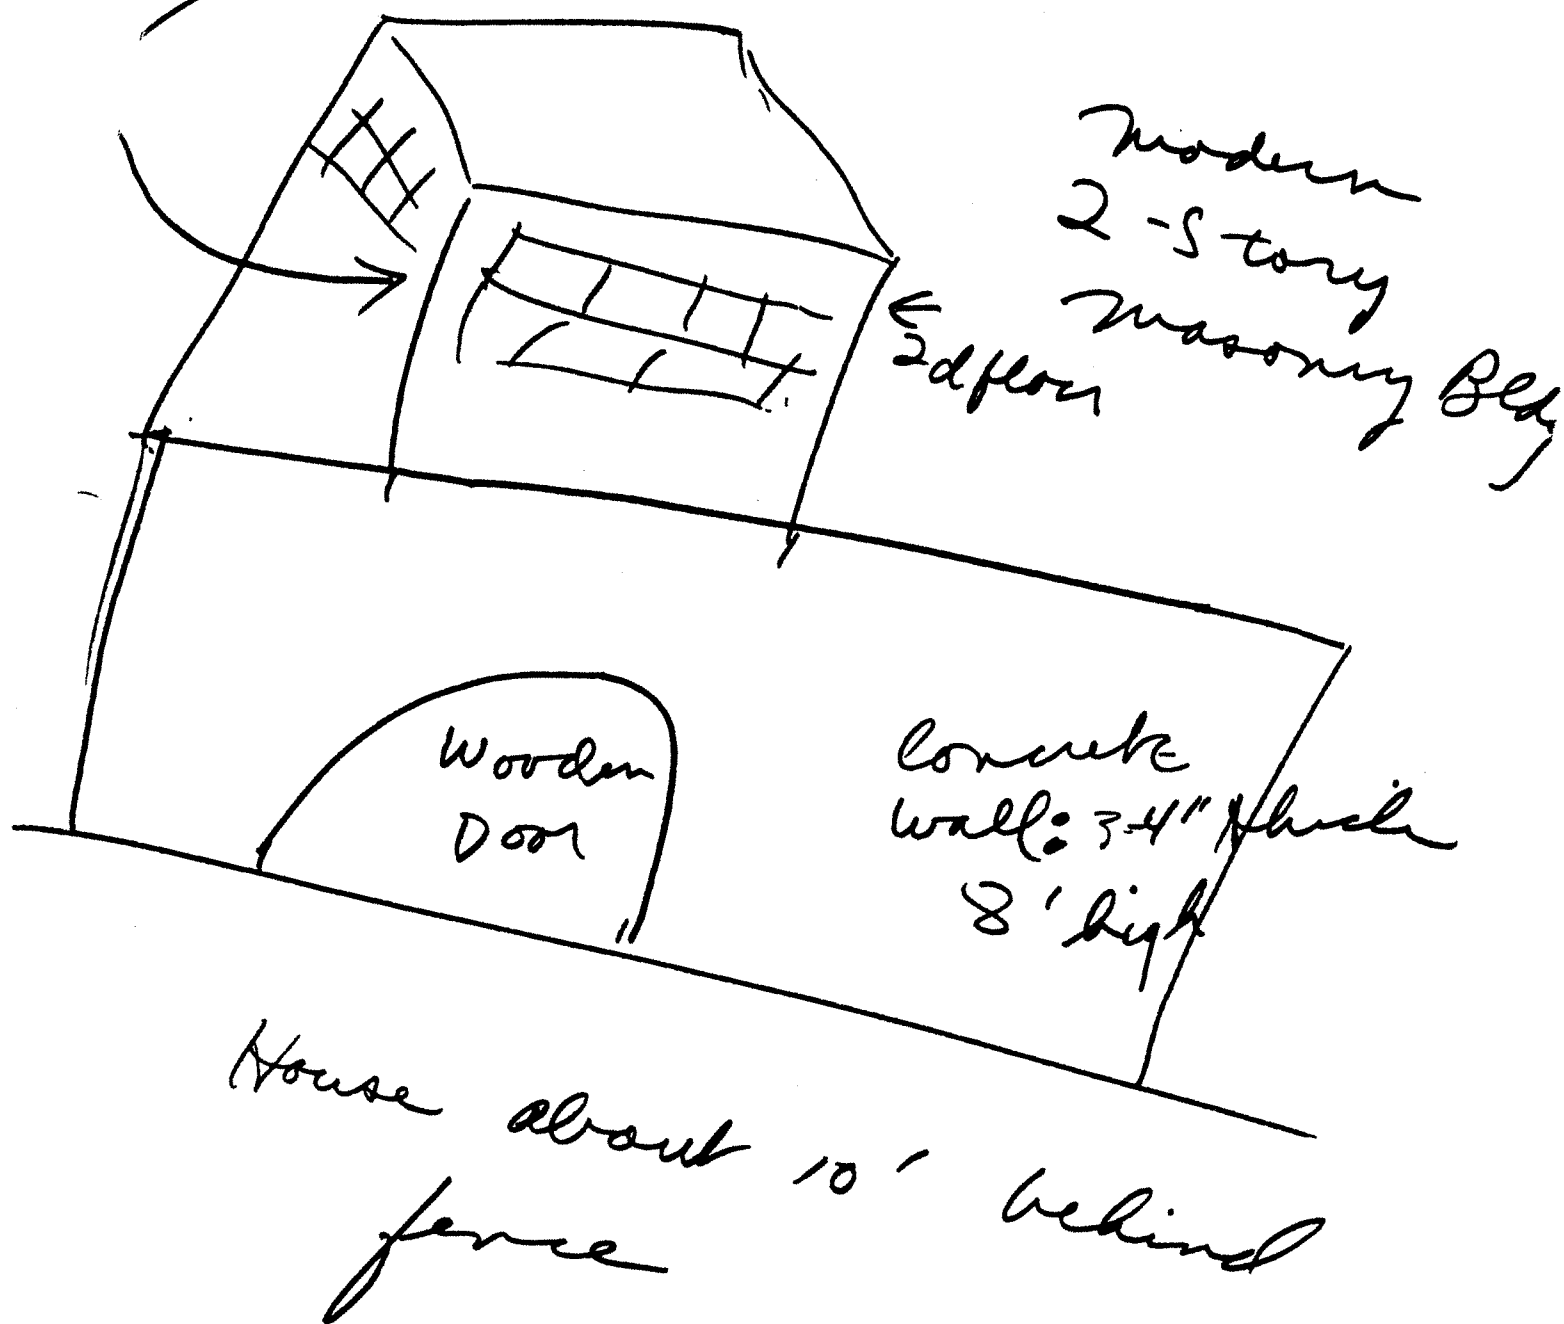 Modern
2-Story
Masonry Bldg
← 2d floor
Wooden
Door
Concrete
wall: 3-4" thick
8' high
House about 10' behind
fence